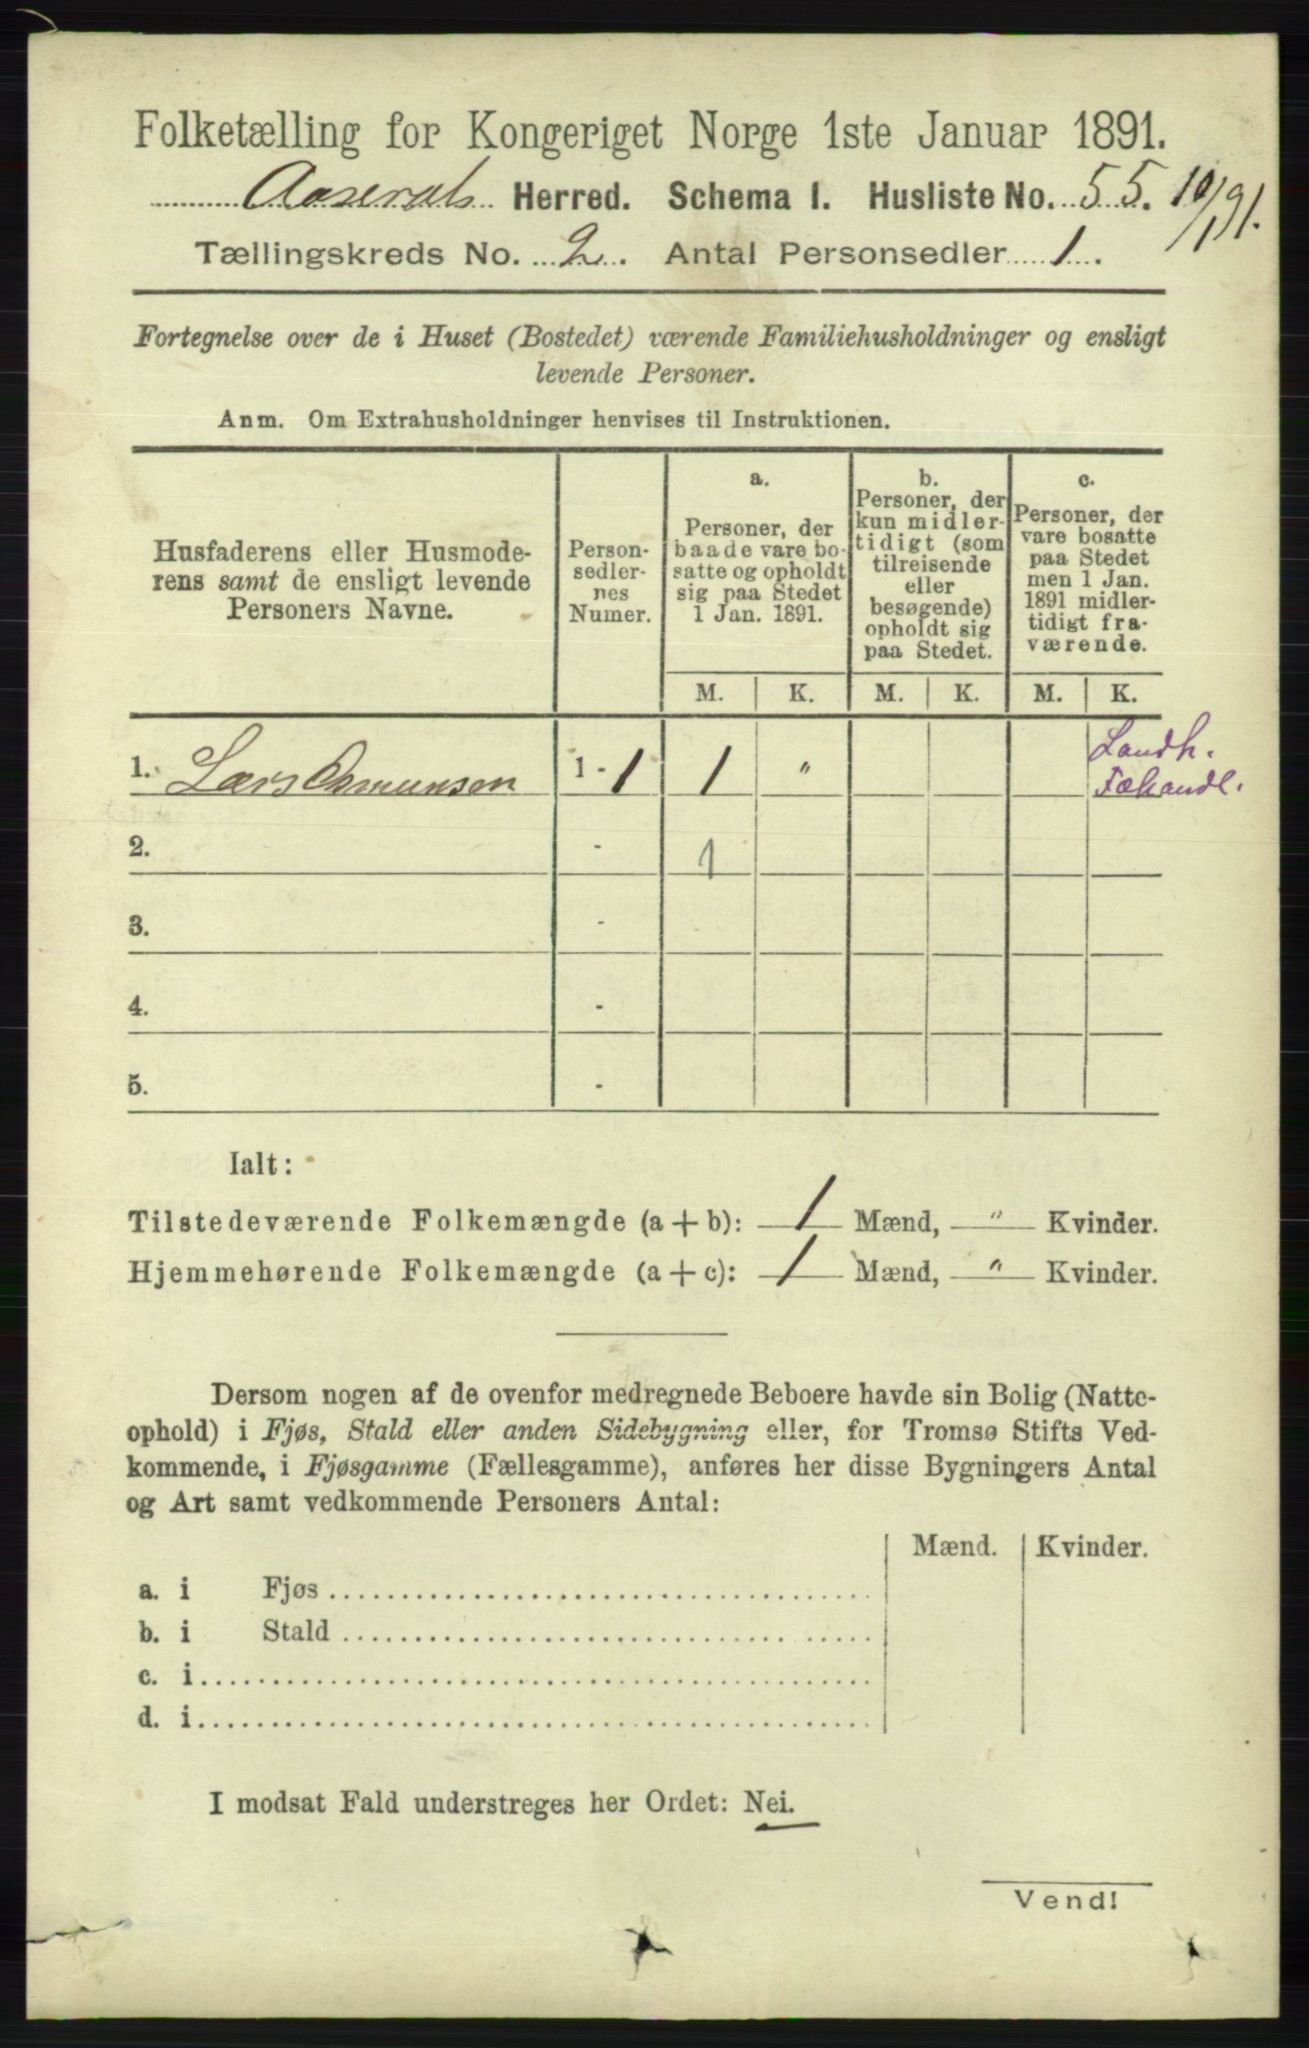 Folketælling for Kongeriget Norge 1ste Januar 1891.
Aaserals Herred. Schema I. Husliste No. 55. 10/1 91.
Tællingskreds No. 2. Antal Personsedler 1.
Fortegnelse over de i Huset (Bostedet) værende Familiehusholdninger og ensligt
levende Personer.
Anm. Om Extrahusholdninger henvises til Instruktionen.
Husfaderens eller Husmode-
rens samt de ensligt levende
Personers Navne.
Person-
sedler-
nes
Numer.
a.
Personer, der
baade vare bo-
satte og opholdt
sig paa Stedet
1 Jan. 1891.
b.
Personer, der
kun midler-
tidigt (som
tilreisende
eller
besøgende)
opholdt sig
paa Stedet.
c.
Personer, der
vare bosatte
paa Stedet
men 1 Jan.
1891 midler-
tidigt fra-
værende.
M. K. M. K. M. K.
1. Lars Osmunsen 1 - 1 1 " Landh.
Fæhandl.
2. - 1
3. -
4. -
5. -
Ialt:
Tilstedeværende Folkemængde (a + b): 1 Mænd, " Kvinder.
Hjemmehørende Folkemængde (a + c): 1 Mænd, " Kvinder.
Dersom nogen af de ovenfor medregnede Beboere havde sin Bolig (Natte-
ophold) i Fjøs, Stald eller anden Sidebygning eller, for Tromsø Stifts Ved-
kommende, i Fjøsgamme (Fællesgamme), anføres her disse Bygningers Antal
og Art samt vedkommende Personers Antal:
Mænd. Kvinder.
a. i Fjøs
b. i Stald
c. i
d. i
I modsat Fald understreges her Ordet: Nei.
Vend!